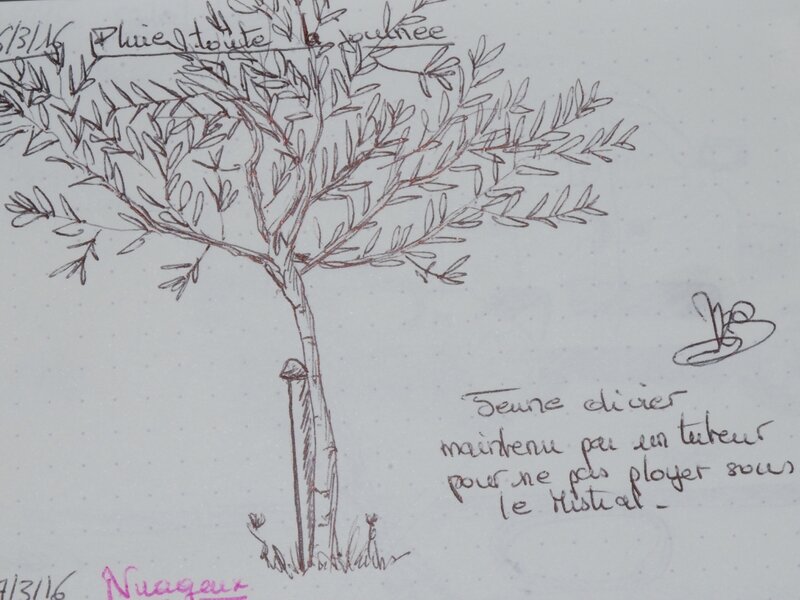 5/3/16 Pluie toute la journée
Jeune olivier
maintenu par un tuteur
pour ne pas ployer sous
le Mistral -
7/3/16 Nuageux